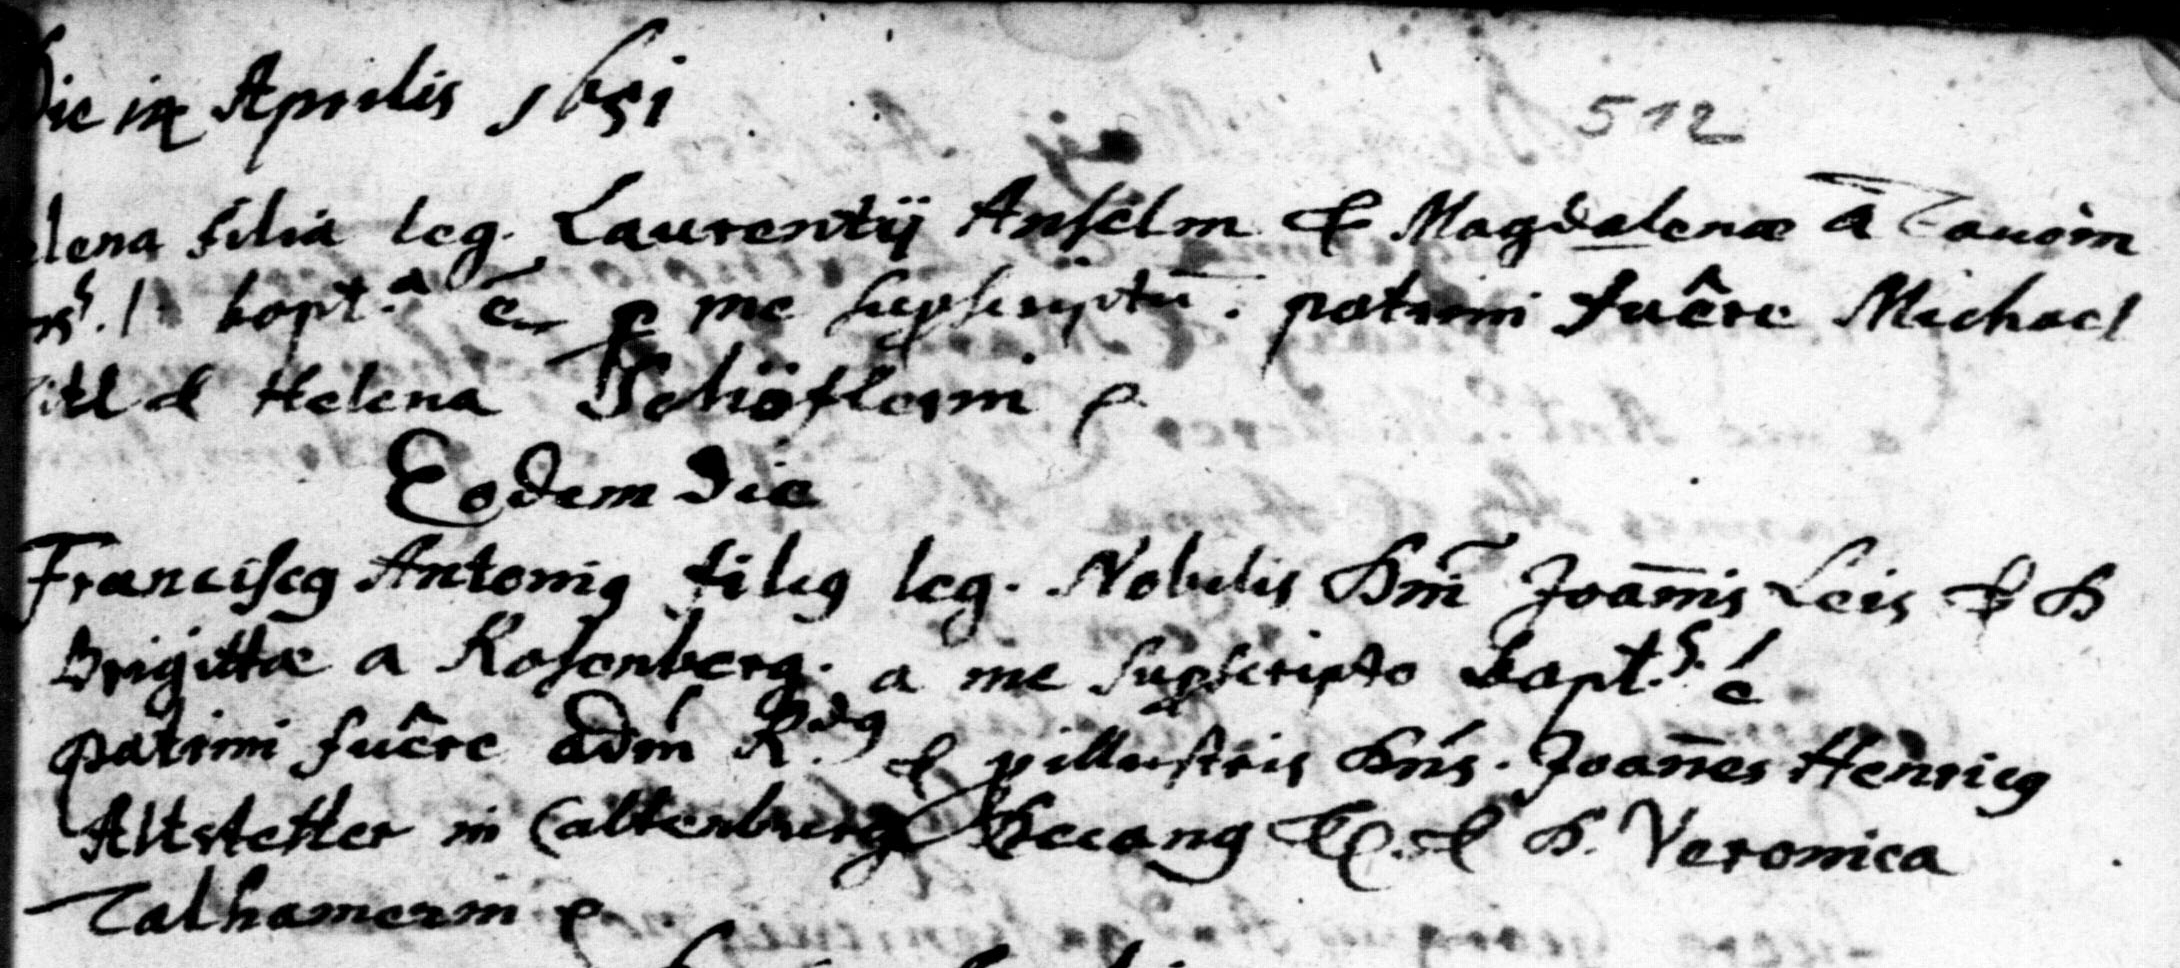 Die Aprilis 1651
512
lena filia leg. Laurentÿ Anselm & Magdalenæ a
bapt.a ē p me supscriptū. patrini fuêre Michael
& Helena Schöflerin
Eodem die
Franciscq Antoniq filiq leg. Nobilis Dnī Joannis Leis & D
Brigittæ a Rosenberg. a me supscripto bapt.s é
patrini fuêre adm R.dq & pillustris Dns. Joannes Henricq
Altstetter in Caltenburg Decanq & D. Veronica
Talhamerin